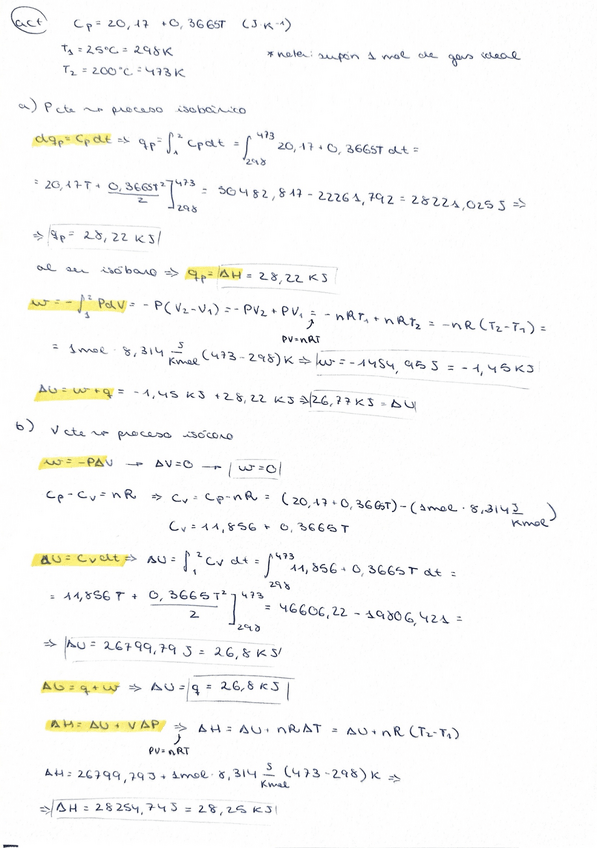 act Cp = 20,17 + 0,3665T (J K⁻¹)
T₁ = 25°C = 298K *nota: supón 1 mol de gas ideal
T₂ = 200°C = 473K
a) P cte → proceso isobárico
dqp = Cp dt ⇒ qp = ∫₁² Cp dt = ∫₂₉₈⁴⁷³ 20,17 + 0,3665T dt =
= 20,17T + 0,3665T²/2 ]₂₉₈⁴⁷³ = 50482,817 - 22261,792 = 28221,025 J ⇒
⇒ qp = 28,22 KJ
al ser isóbaro ⇒ qp = ΔH = 28,22 KJ
w = -∫₁² PdV = -P(V₂-V₁) = -PV₂ + PV₁ = -nRT₁ + nRT₂ = -nR(T₂-T₁) =
PV=nRT
= 1mol · 8,314 J/Kmol (473-298)K ⇒ w = -1454,95 J = -1,45 KJ
ΔU = w+q = -1,45 KJ + 28,22 KJ ⇒ 26,77 KJ = ΔU
b) V cte → proceso isócoro
w = -PΔV → ΔV=0 → w=0
Cp - Cv = nR ⇒ Cv = Cp-nR = (20,17 + 0,3665T) - (1mol · 8,314 J/Kmol)
Cv = 11,856 + 0,3665T
dU = Cv dt ⇒ ΔU = ∫₁² Cv dt = ∫₂₉₈⁴⁷³ 11,856 + 0,3665T dt =
= 11,856T + 0,3665T²/2 ]₂₉₈⁴⁷³ = 46606,22 - 19806,421 =
⇒ ΔU = 26799,79 J = 26,8 KJ
ΔU = q+w ⇒ ΔU = q = 26,8 KJ
ΔH = ΔU + VΔP ⇒ ΔH = ΔU + nRΔT = ΔU + nR(T₂-T₁)
PV=nRT
ΔH = 26799,79J + 1mol · 8,314 J/Kmol (473-298)K ⇒
⇒ ΔH = 28254,74 J = 28,25 KJ